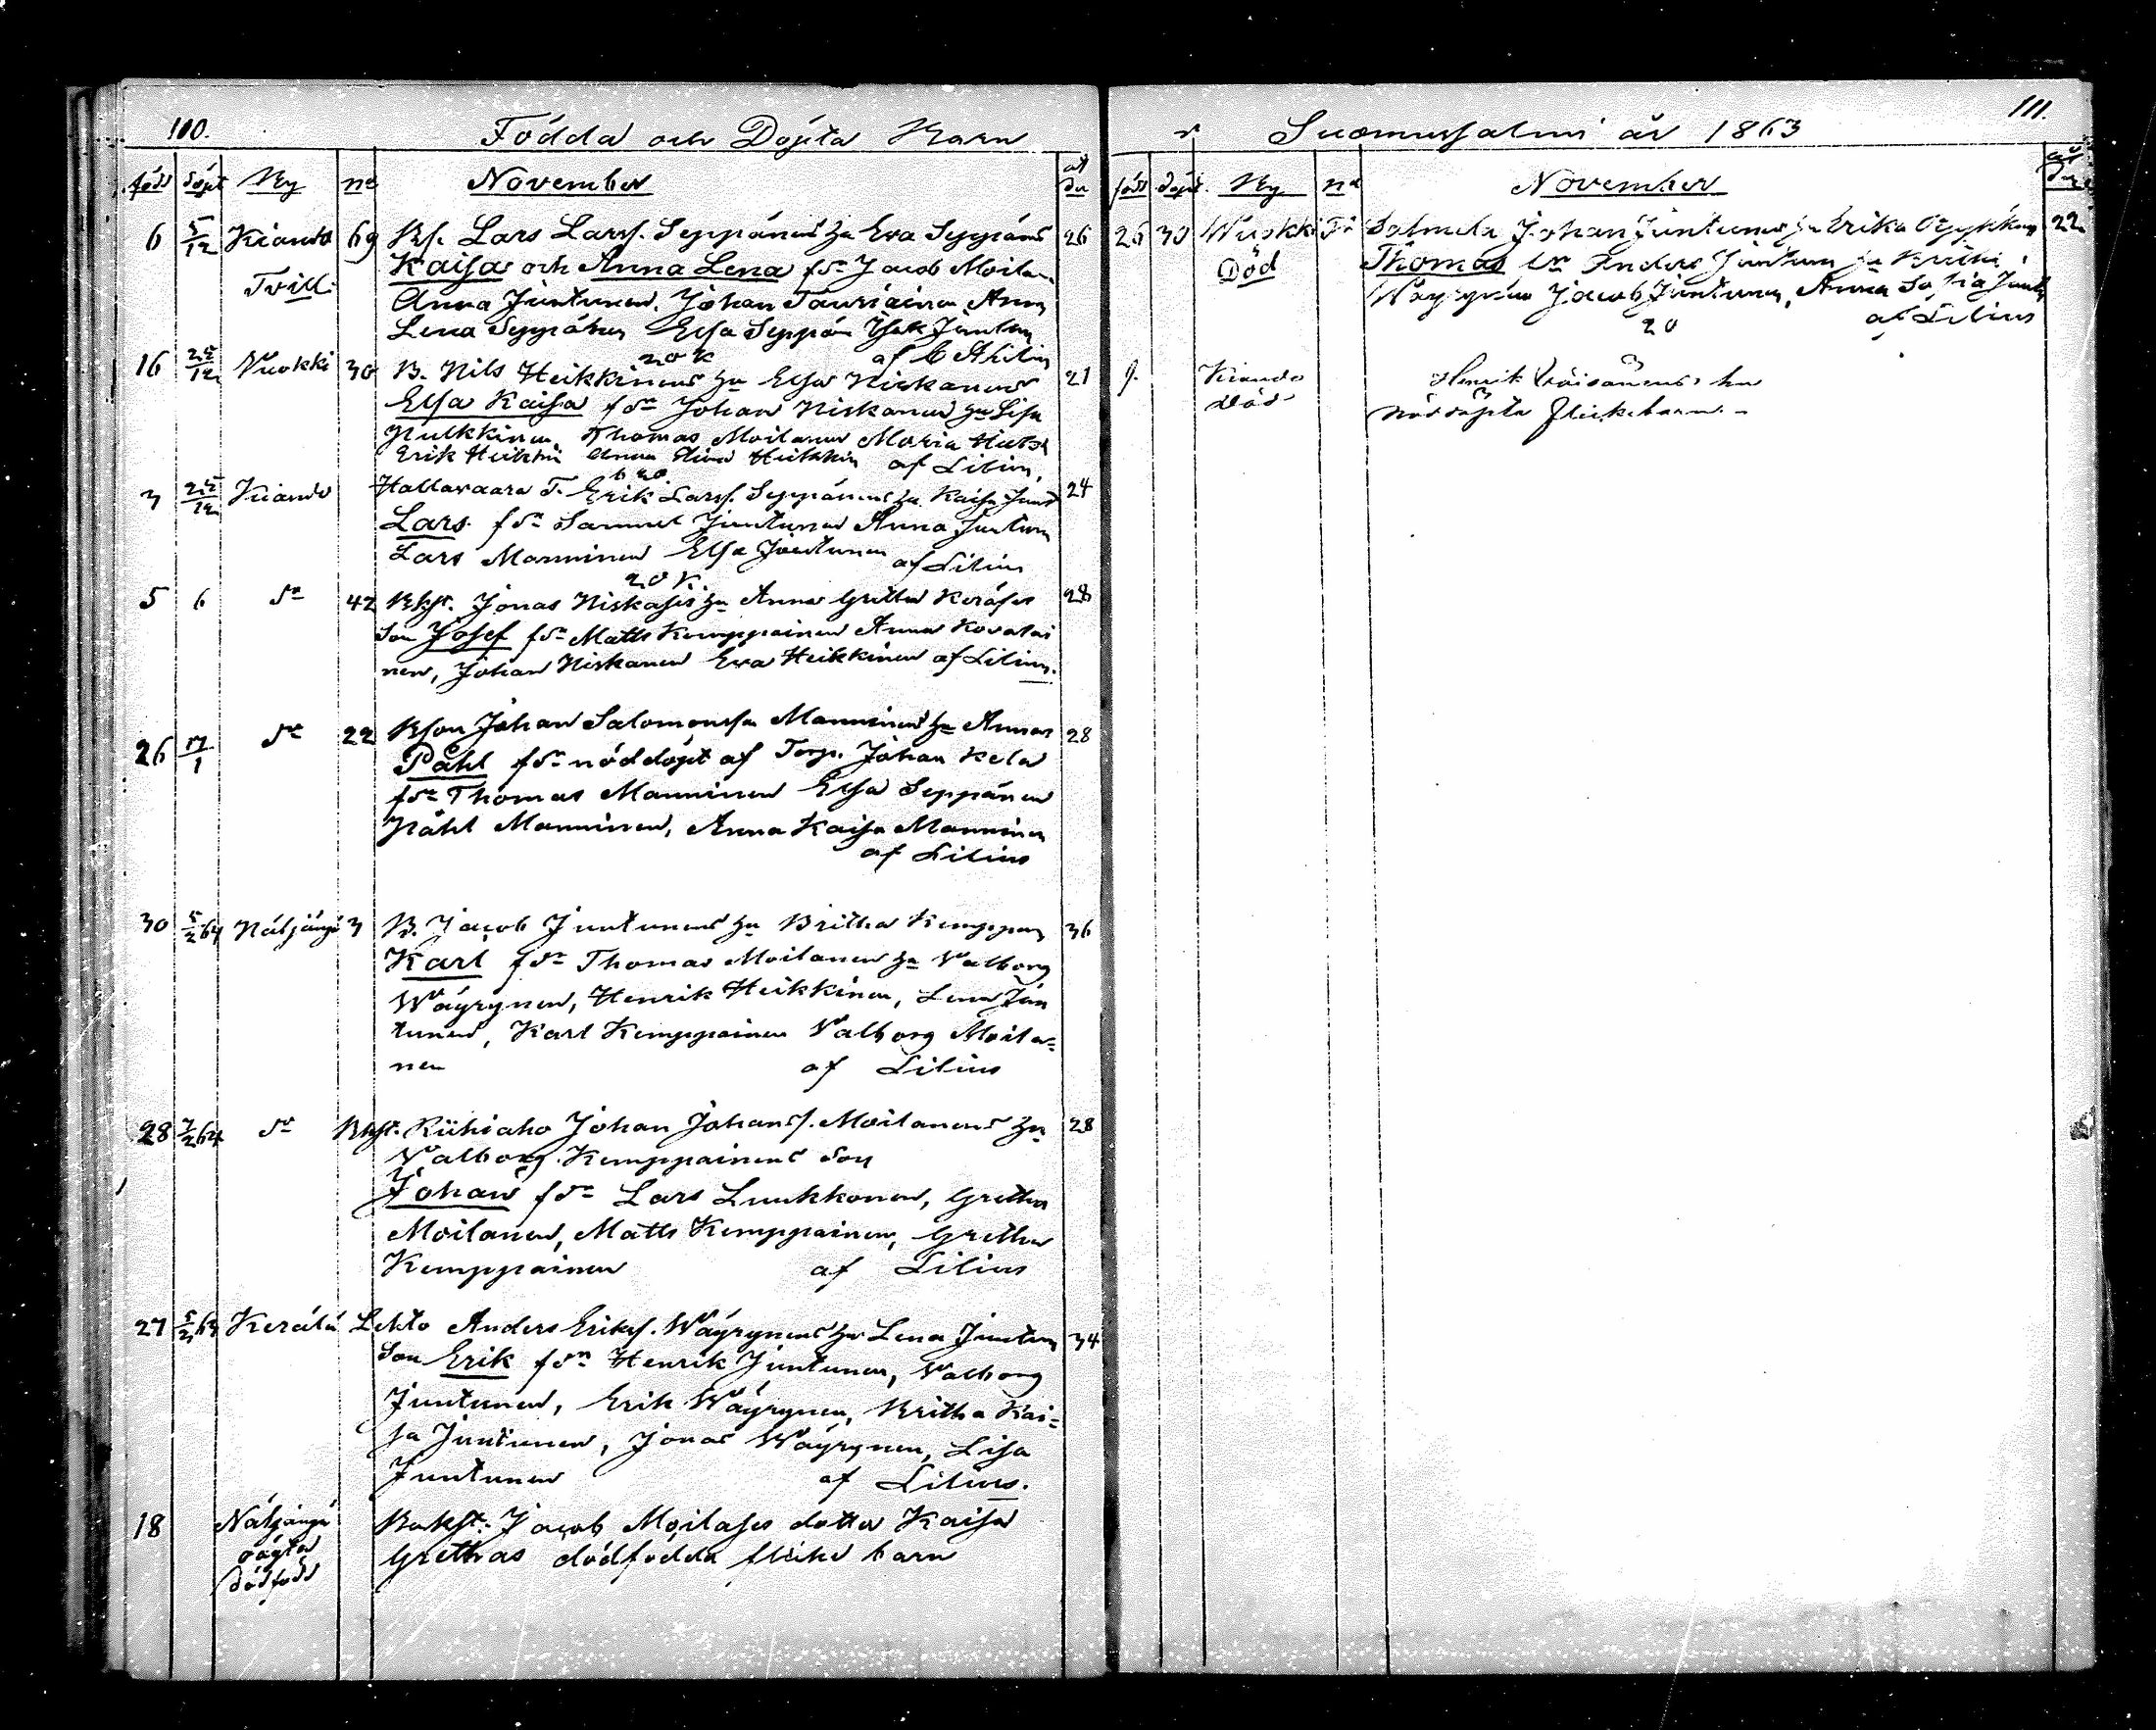 110.
Födda och Döpta Barn
född döpt By No November
6 5/12 Kianda 69 Bs. Lars Larss. Seppänens hu Eva Seppäns 26
Tvill. Kaisa och Anna Lena fdr Jacob Moila
Anna Juntunen, Johan Tauriainen Anna
Lena Seppänen Elsa Seppän Isak Juntun
20 k af C Ahlin
16 25/12 Vuokki 30 B. Nils Heikkinens hu Elsa Niskanens 21
Elsa Kaisa fdr Johan Niskanen hu Lisa
Pulkkinen, Thomas Moilanen Maria
Erik Heikkin Anna Heikkin af Lilius,
3 25/12 Kianda Hallavaara T. Erik Larss. Seppänens hu Kaisa Junt 24
Lars fdr Samuel Juntunen Anna Juntun
Lars Manninen Elsa Juntunen af Lilius
20 k.
5 6 do 42 Bkst. Jonas Niskases hu Anna Gretha Keräses 28
son Josef fdr Matts Kemppainen Anna Kovalai
nen, Johan Niskanen Eva Heikkinen af Lilius.
26 17/1 do 22 Bson Johan Salomonssn Manninens hu Annas 28
Påhl fdr nöddöpt af Torp. Johan Kela
fdr Thomas Manninen Elsa Seppänen
Påhl Manninen, Anna Kaisa Manninen
af Lilius
30 5/2 64 Näljängä 3 B. Jacob Juntunens hu Britha Kemppan 36
Karl fdr Thomas Moilanen hu Valborg
Wäyrynen, Henrik Heikkinen, Lena Jun
tunen, Karl Kemppainen Valborg Moila=
nen af Lilius
28 7/2 64 do Bkst. Riihiaho Johan Johanss. Moilanens hu 28
Valborg Kemppainens son
Johan fdr Lars Luukkonen, Gretha
Moilanen, Matts Kemppainen, Gretha
Kemppainen af Lilius
27 5/2 63 Kerälä Lehto Anders Erikss. Wäyrynens hu Lena Juntun 34
son Erik fdr Henrik Juntunen, Valborg
Juntunen, Erik Wäyrynen, Britha Kai=
sa Juntunen, Jonas Wäyrynen, Lisa
Juntunen af Lilius.
18 Näljängä Bakst. Jacob Moilases dotter Kaisa
oägta Grethas dödfödda flicke barn
dödfödd
111.
i Suomussalmi år 1863
född döpt. By No November
26 30 Wuokki Salmela Johan Juntunens hu Erika 22
Död Thomas Anders Juntunen hu
Wäyrynen Jacob Juntunen, Anna Sofia Junt
20 af Lilius
9. Kianda Henrik Väisänens hu
död nöddöpta flickebarn. -